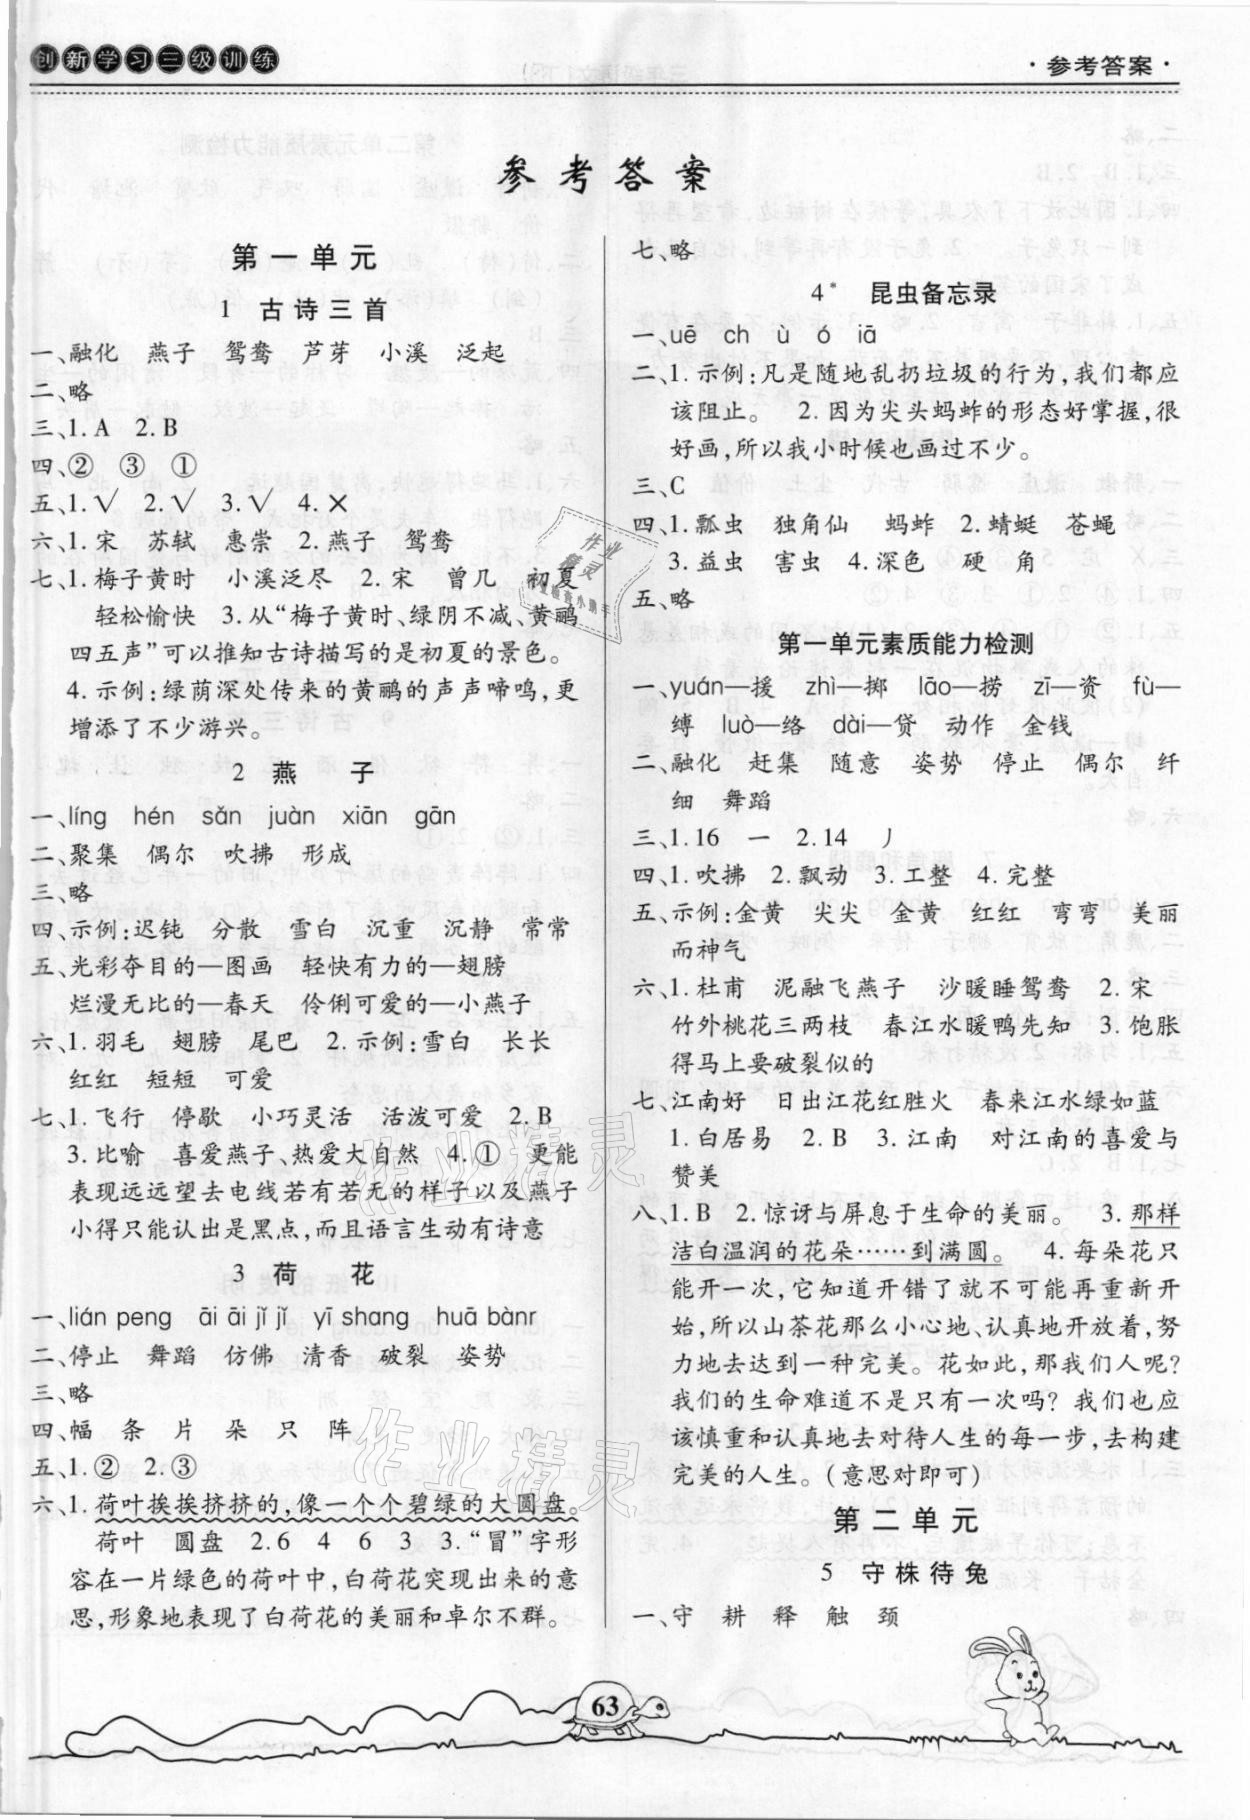 创新学习三级训练
·参考答案·
参考答案
第一单元
1 古诗三首
一、融化 燕子 鸳鸯 芦芽 小溪 泛起
二、略
三、1.A 2.B
四、② ③ ①
五、1.√ 2.√ 3.√ 4.×
六、1.宋 苏轼 惠崇 2.燕子 鸳鸯
七、1.梅子黄时 小溪泛尽 2.宋 曾几 初夏
轻松愉快 3.从“梅子黄时、绿阴不减、黄鹂
四五声”可以推知古诗描写的是初夏的景色。
4.示例:绿荫深处传来的黄鹂的声声啼鸣,更
增添了不少游兴。
2 燕子
一、líng hén sǎn juàn xiān gān
二、聚集 偶尔 吹拂 形成
三、略
四、示例:迟钝 分散 雪白 沉重 沉静 常常
五、光彩夺目的—图画 轻快有力的—翅膀
烂漫无比的—春天 伶俐可爱的—小燕子
六、1.羽毛 翅膀 尾巴 2.示例:雪白 长长
红红 短短 可爱
七、1.飞行 停歇 小巧灵活 活泼可爱 2.B
3.比喻 喜爱燕子、热爱大自然 4.① 更能
表现远远望去电线若有若无的样子以及燕子
小得只能认出是黑点,而且语言生动有诗意
3 荷花
一、lián peng āi āi jǐ jǐ yī shang huā bànr
二、停止 舞蹈 仿佛 清香 破裂 姿势
三、略
四、幅 条 片 朵 只 阵
五、1.② 2.③
六、1.荷叶挨挨挤挤的,像一个个碧绿的大圆盘。
荷叶 圆盘 2.6 4 6 3 3.“冒”字形
容在一片绿色的荷叶中,白荷花突现出来的意
思,形象地表现了白荷花的美丽和卓尔不群。
七、略
4* 昆虫备忘录
一、uē ch ù ó iā
二、1.示例:凡是随地乱扔垃圾的行为,我们都应
该阻止。 2.因为尖头蚂蚱的形态好掌握,很
好画,所以我小时候也画过不少。
三、C
四、1.瓢虫 独角仙 蚂蚱 2.蜻蜓 苍蝇
3.益虫 害虫 4.深色 硬 角
五、略
第一单元素质能力检测
一、yuán—援 zhì—掷 lāo—捞 zī—资 fù—
缚 luò—络 dài—贷 动作 金钱
二、融化 赶集 随意 姿势 停止 偶尔 纤
细 舞蹈
三、1.16 一 2.14 丿
四、1.吹拂 2.飘动 3.工整 4.完整
五、示例:金黄 尖尖 金黄 红红 弯弯 美丽
而神气
六、1.杜甫 泥融飞燕子 沙暖睡鸳鸯 2.宋
竹外桃花三两枝 春江水暖鸭先知 3.饱胀
得马上要破裂似的
七、江南好 日出江花红胜火 春来江水绿如蓝
1.白居易 2.B 3.江南 对江南的喜爱与
赞美
八、1.B 2.惊讶与屏息于生命的美丽。 3.那样
洁白温润的花朵……到满圆。 4.每朵花只
能开一次,它知道开错了就不可能再重新开
始,所以山茶花那么小心地、认真地开放着,努
力地去达到一种完美。花如此,那我们人呢?
我们的生命难道不是只有一次吗?我们也应
该慎重和认真地去对待人生的每一步,去构建
完美的人生。(意思对即可)
第二单元
5 守株待兔
一、守 耕 释 触 颈
63
作业精灵
作业精灵
作业精灵